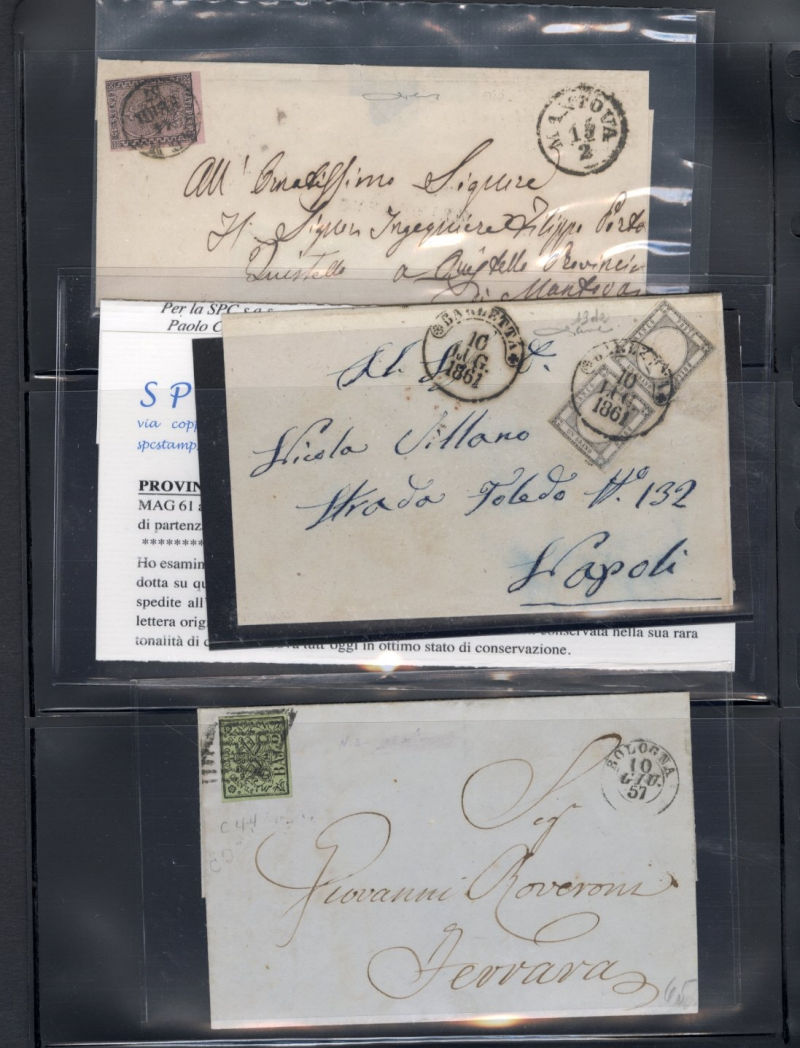 MANTOVA
12
2
All' Ornatissimo Signore
Il Signor Ingegniere Filippo Porto
Quistello a Quistello Provincia
Di Mantova
Per la SPC s.a.s
Paolo C
S P
via copp
spcstamp
PROVIN
MAG 61 a
di partenza
**********
Ho esamin
dotta su qu
spedite all'
lettera orig
conservata nella sua rara
tonalità di
tutt'oggi in ottimo stato di conservazione.
BARLETTA
10
LUG.
1861
BARLETTA
10
LUG.
1861
Nicola Villano
Strada Toledo N.º 132
Napoli
BOLOGNA
10
GIU.
57
BAJ
C 44
Sig
Giovanni Roveroni
Ferrara